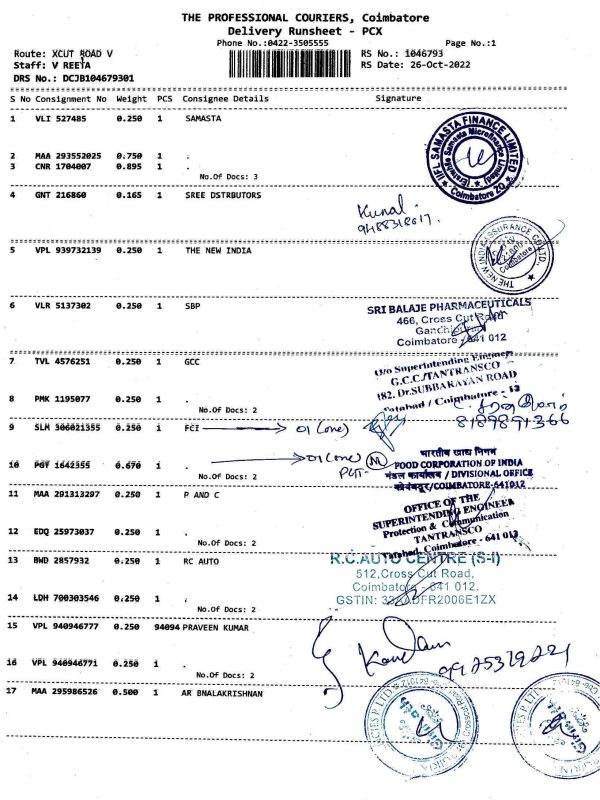 THE PROFESSIONAL COURIERS, Coimbatore
Delivery Runsheet - PCX
Phone No.:0422-3505555
Page No.:1
Route: XCUT ROAD V
RS No.: 1046793
Staff: V REETA
RS Date: 26-Oct-2022
DRS No.: DCJB104679301
S No Consignment No Weight PCS Consignee Details Signature
1 VLI 527485 0.250 1 SAMASTA
IIFL SAMASTA FINANCE LIMITED
Coimbatore ZO
2 MAA 293552025 0.750 1 .
3 CNR 1704007 0.895 1 .
No.Of Docs: 3
4 GNT 216860 0.165 1 SREE DSTRBUTORS
Kunal
9488318017.
5 VPL 939732139 0.250 1 THE NEW INDIA
THE NEW INDIA ASSURANCE CO. LTD.
Coimbatore
6 VLR 5137302 0.250 1 SBP
SRI BALAJE PHARMACEUTICALS
466, Cross Cut Road
Coimbatore - 641 012
7 TVL 4576251 0.250 1 GCC
O/o Superintending Engineer
G.C.C./TANTRANSCO
182, Dr.SUBBARAYAN ROAD
Tatabad / Coimbatore - 12
8 PMK 1195077 0.250 1 .
No.Of Docs: 2
8189891366
9 SLM 306021355 0.250 1 FCI
01 (one)
10 PGT 1642355 0.670 1 .
01 (one)
No.Of Docs: 2
भारतीय खाद्य निगम
FOOD CORPORATION OF INDIA
मंडल कार्यालय / DIVISIONAL OFFICE
कोयंबटूर/COIMBATORE-641012
11 MAA 291313297 0.250 1 P AND C
OFFICE OF THE
SUPERINTENDING ENGINEER
Protection & Communication
TANTRANSCO
Tatabad, Coimbatore - 641 012
12 EDQ 25973037 0.250 1 .
No.Of Docs: 2
13 BWD 2857932 0.250 1 RC AUTO
R.C.AUTO CENTRE (S-I)
512,Cross Cut Road,
Coimbatore - 641 012.
14 LDH 700303546 0.250 1 .
No.Of Docs: 2
15 VPL 940946777 0.250 94094 PRAVEEN KUMAR
16 VPL 940946771 0.250 1 .
No.Of Docs: 2
17 MAA 295986526 0.500 1 AR BNALAKRISHNAN